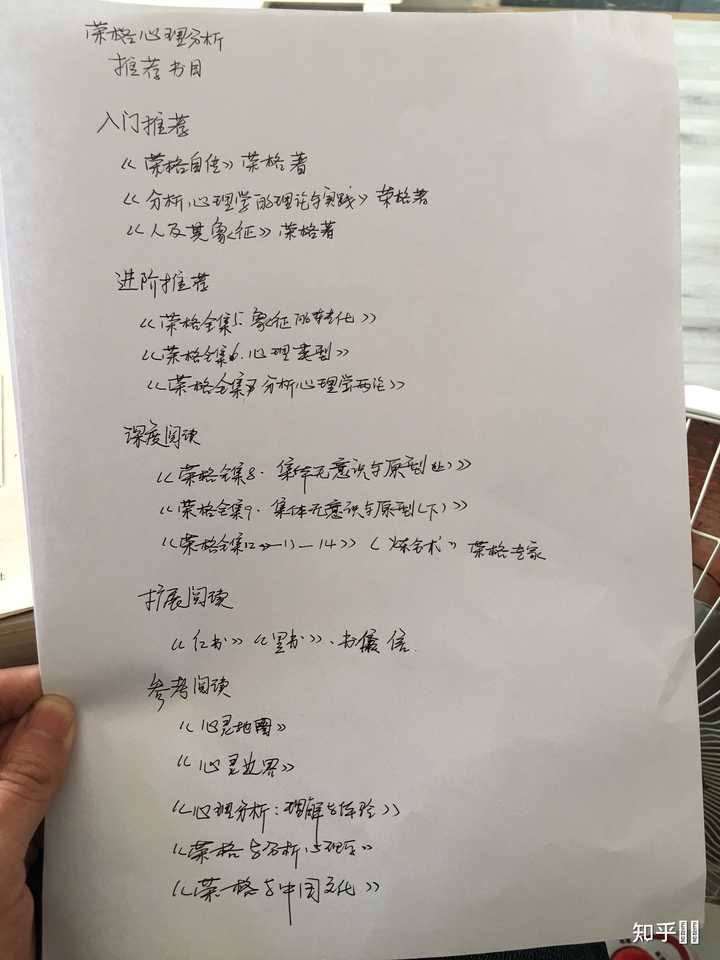 荣格心理分析
推荐书目
入门推荐
《荣格自传》荣格著
《分析心理学的理论与实践》荣格著
《人及其象征》荣格著
进阶推荐
《荣格全集5.象征的转化》
《荣格全集6.心理类型》
《荣格全集7分析心理学两论》
深度阅读
《荣格全集8.集体无意识与原型(上)》
《荣格全集9.集体无意识与原型(下)》
《荣格全集12—13—14》《炼金术》荣格专家
扩展阅读
《红书》《黑书》、书信
参考阅读
《心灵地图》
《心灵边界》
《心理分析:理解与体验》
《荣格与分析心理学》
《荣格与中国文化》
知乎